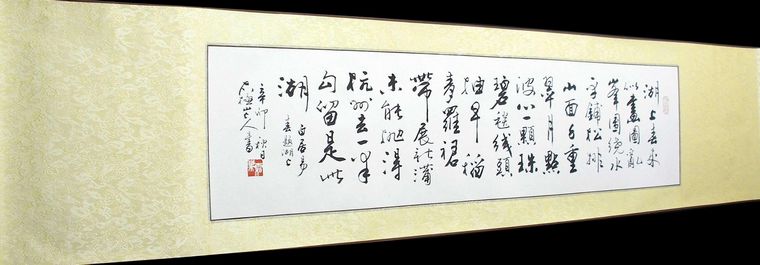 湖上春来
似畫圖乱
峯围绕水
平铺松排
山面千重
翠月點
波心一顆珠
碧毯线頭
抽早稻
青羅裙
帶展新蒲
未能抛得
杭州去一半
勾留是此
湖
白居易
春题湖上
辛卯秋月
山人書